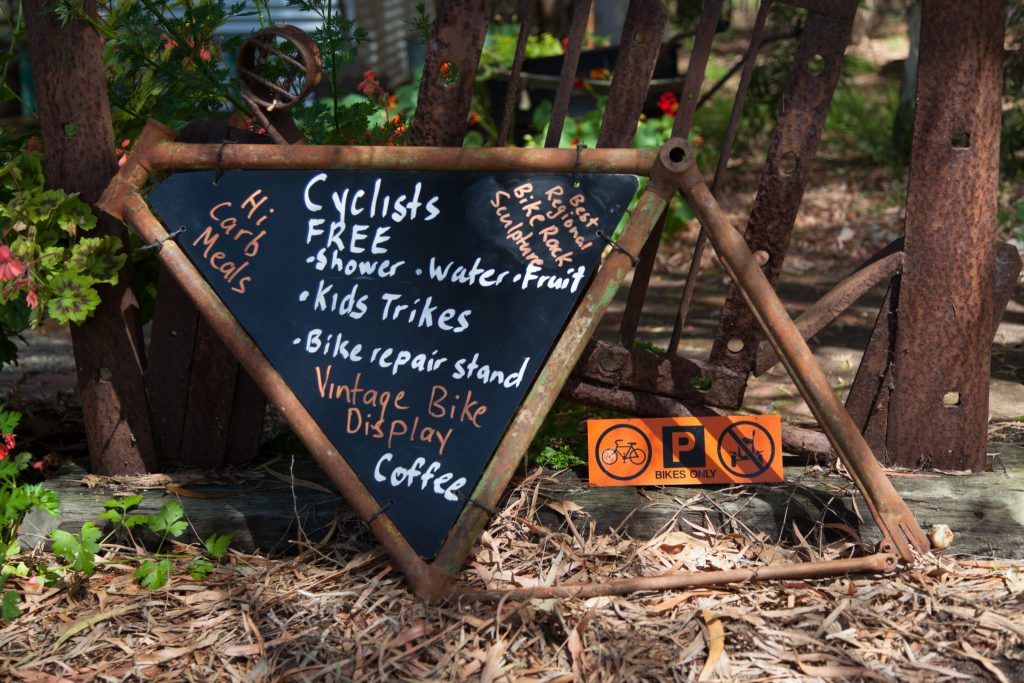 Hi
Carb
Meals
Cyclists
FREE
•Shower •Water •Fruit
•Kids Trikes
•Bike repair stand
Vintage Bike
Display
Coffee
Best
Regional
Bike Rack
Sculpture
P
BIKES ONLY